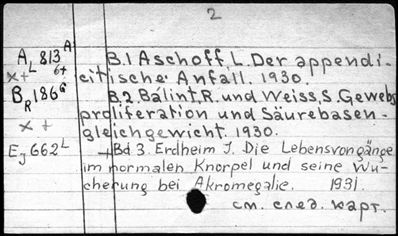 2
A L 813 A B.1 Aschoff, L. Der appendi-
x+ 6+ citische Anfall. 1930.
B R 186 G B.2 Balint, R. und Weiss, S. Gewebs
proliferation und Säurebasen-
x+ gleichgewicht. 1930.
E J 662 L + Bd 3. Erdheim J. Die Lebensvorgänge
im normalen Knorpel und seine Wu-
cherung bei Akromegalie. 1931.
см. след. карт.